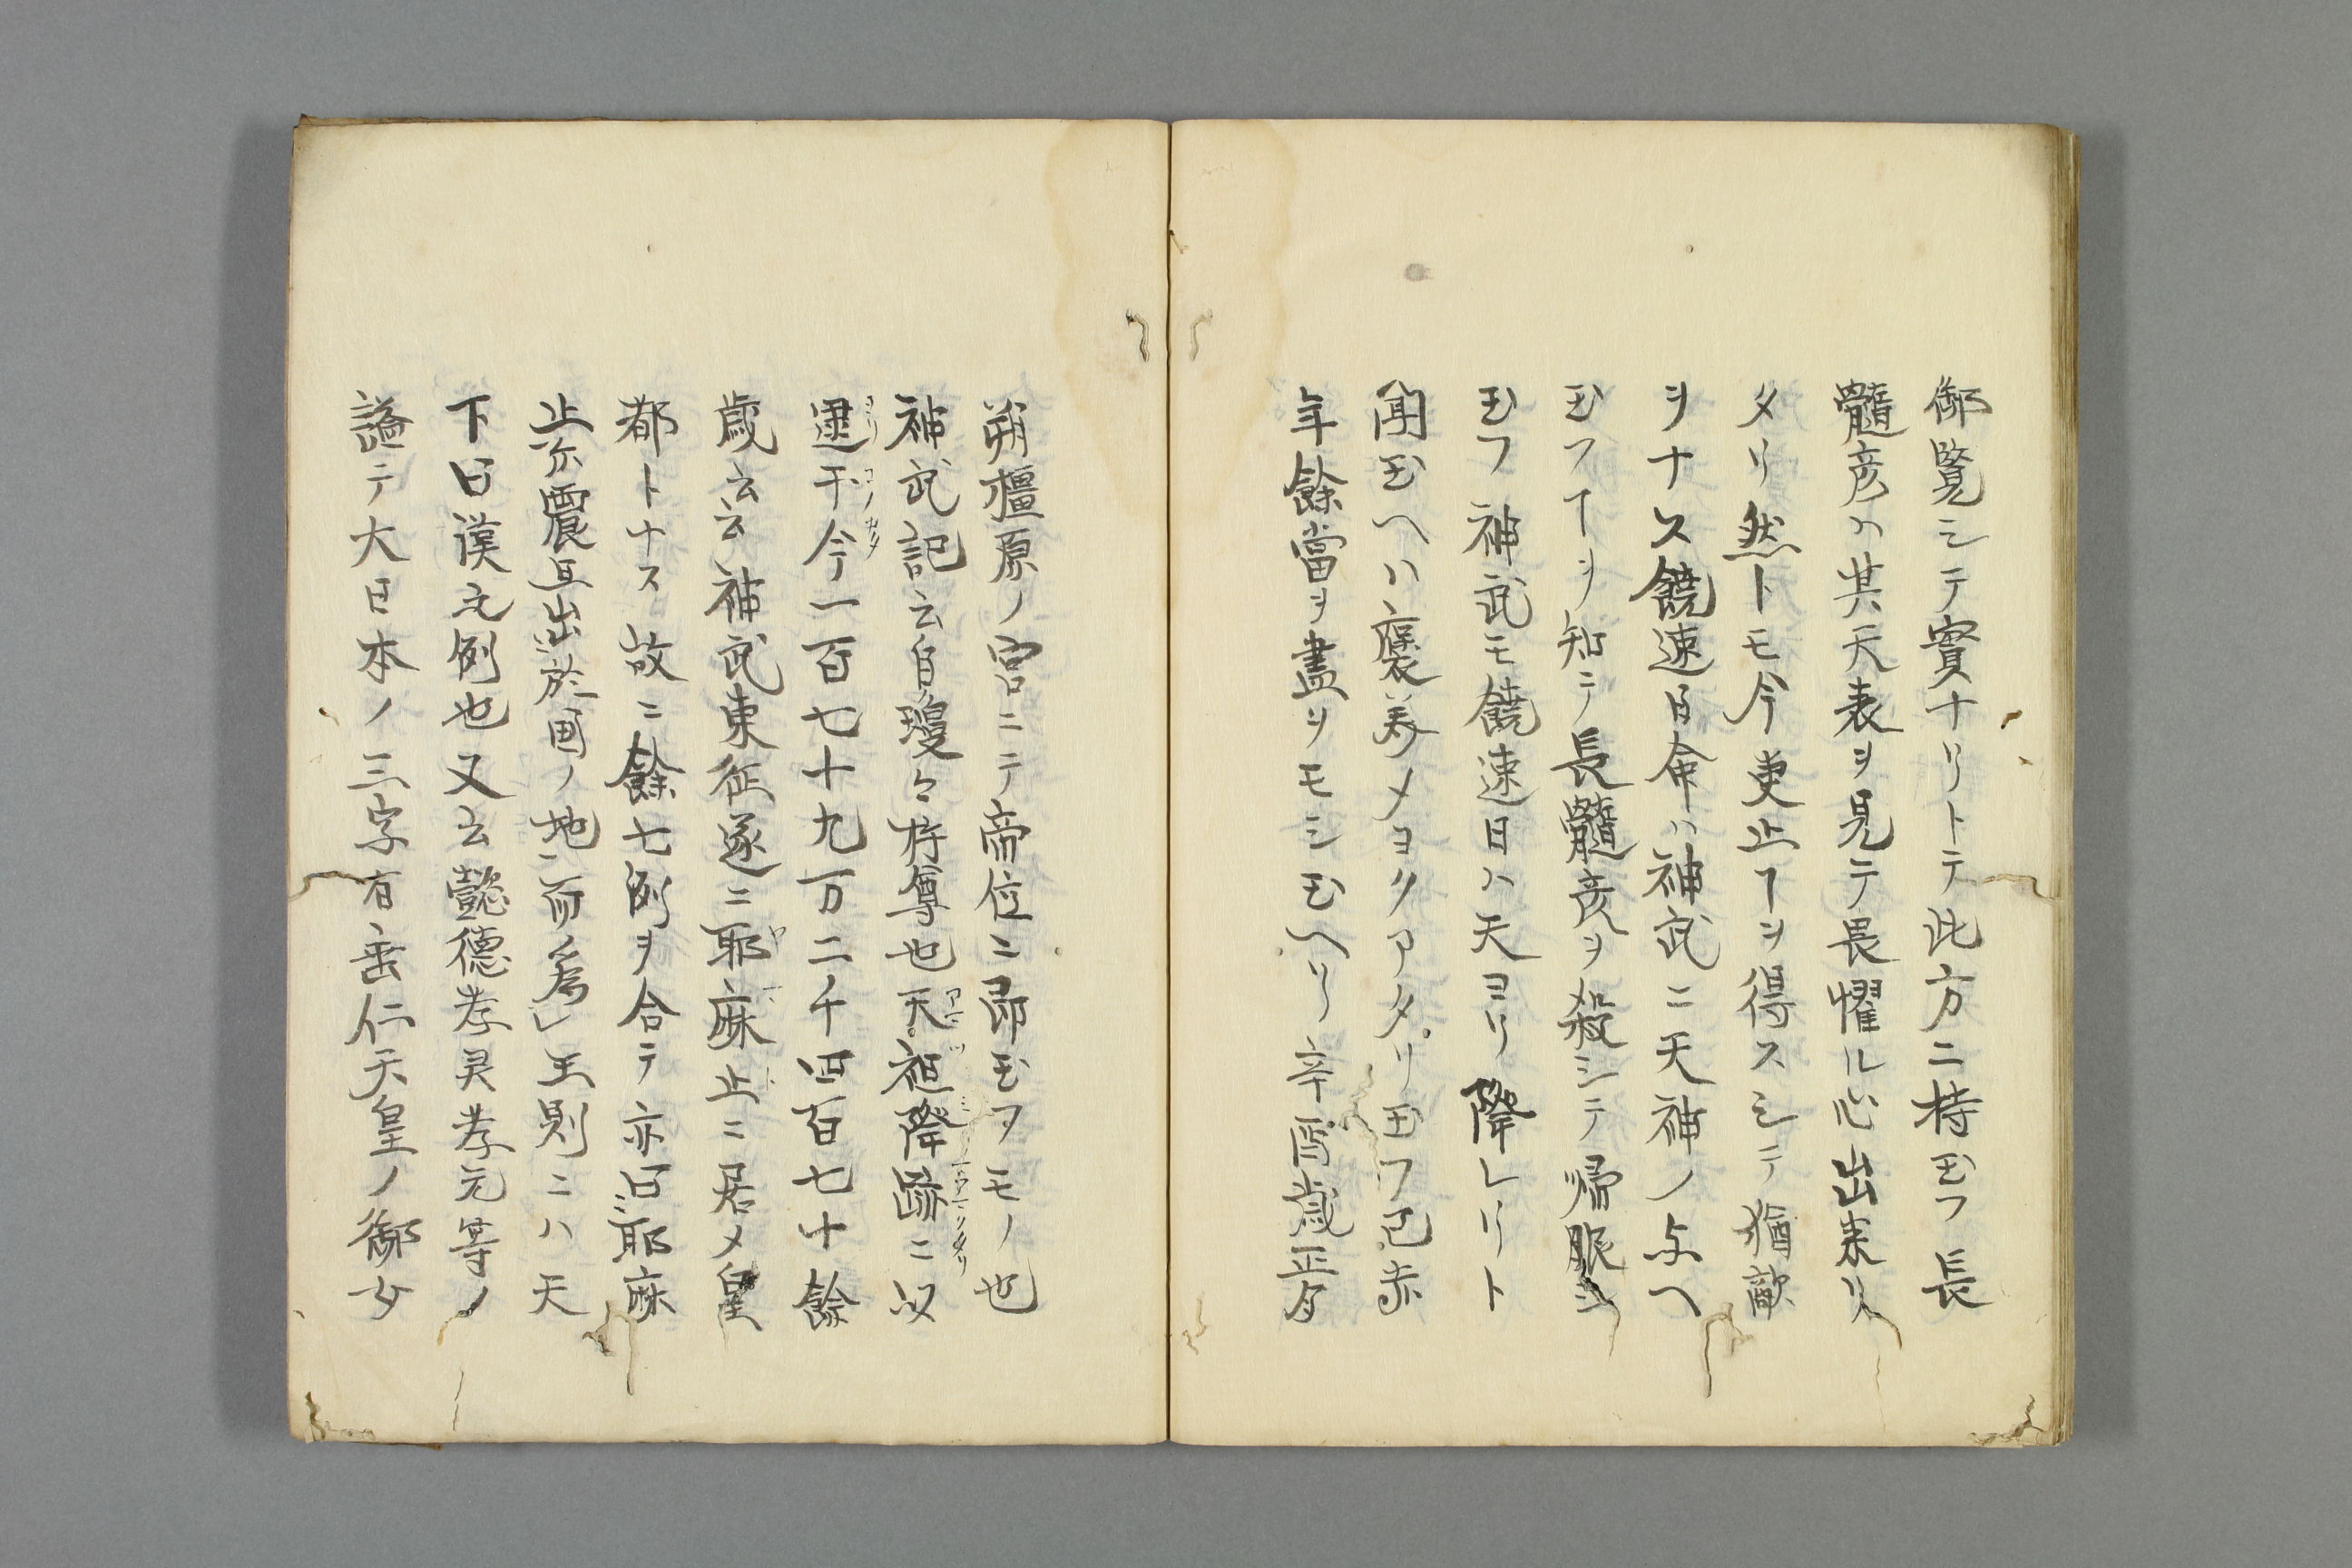 御覧シテ實ナリトテ此方ニ持玉フ長
髓彦ハ其天表ヲ見テ畏懼ル心出来リ
タリ然トモ今更止ヿヲ得スシテ猶敵
ヲナス饒速日命ハ神武ニ天神ノ与ヘ
玉フヿヲ知テ長髓彦ヲ殺シテ帰服シ
玉フ神武モ饒速日ハ天ヨリ降レリト
聞玉ヘハ褒美メヨクアタリ玉フ已未
年餘當ヲ盡ツモシ玉ヘリ辛酉歳正月
朔橿原ノ宮ニテ帝位ニ昂玉ヲモノ也
神武記云自瓊々杵尊也天祖降跡ニ以
逮于今一百七十九万二千四百七十餘
歳云云神武東征遂ニ耶麻止ニ居メ皇
都トナス故ニ餘七列ヲ合テ亦曰耶麻
止尓震旦出於函ノ地而為王則ニハ天
下曰漢之例也又云懿徳孝灵孝元等ノ
諡テ大日本ノ三字有垂仁天皇ノ御女